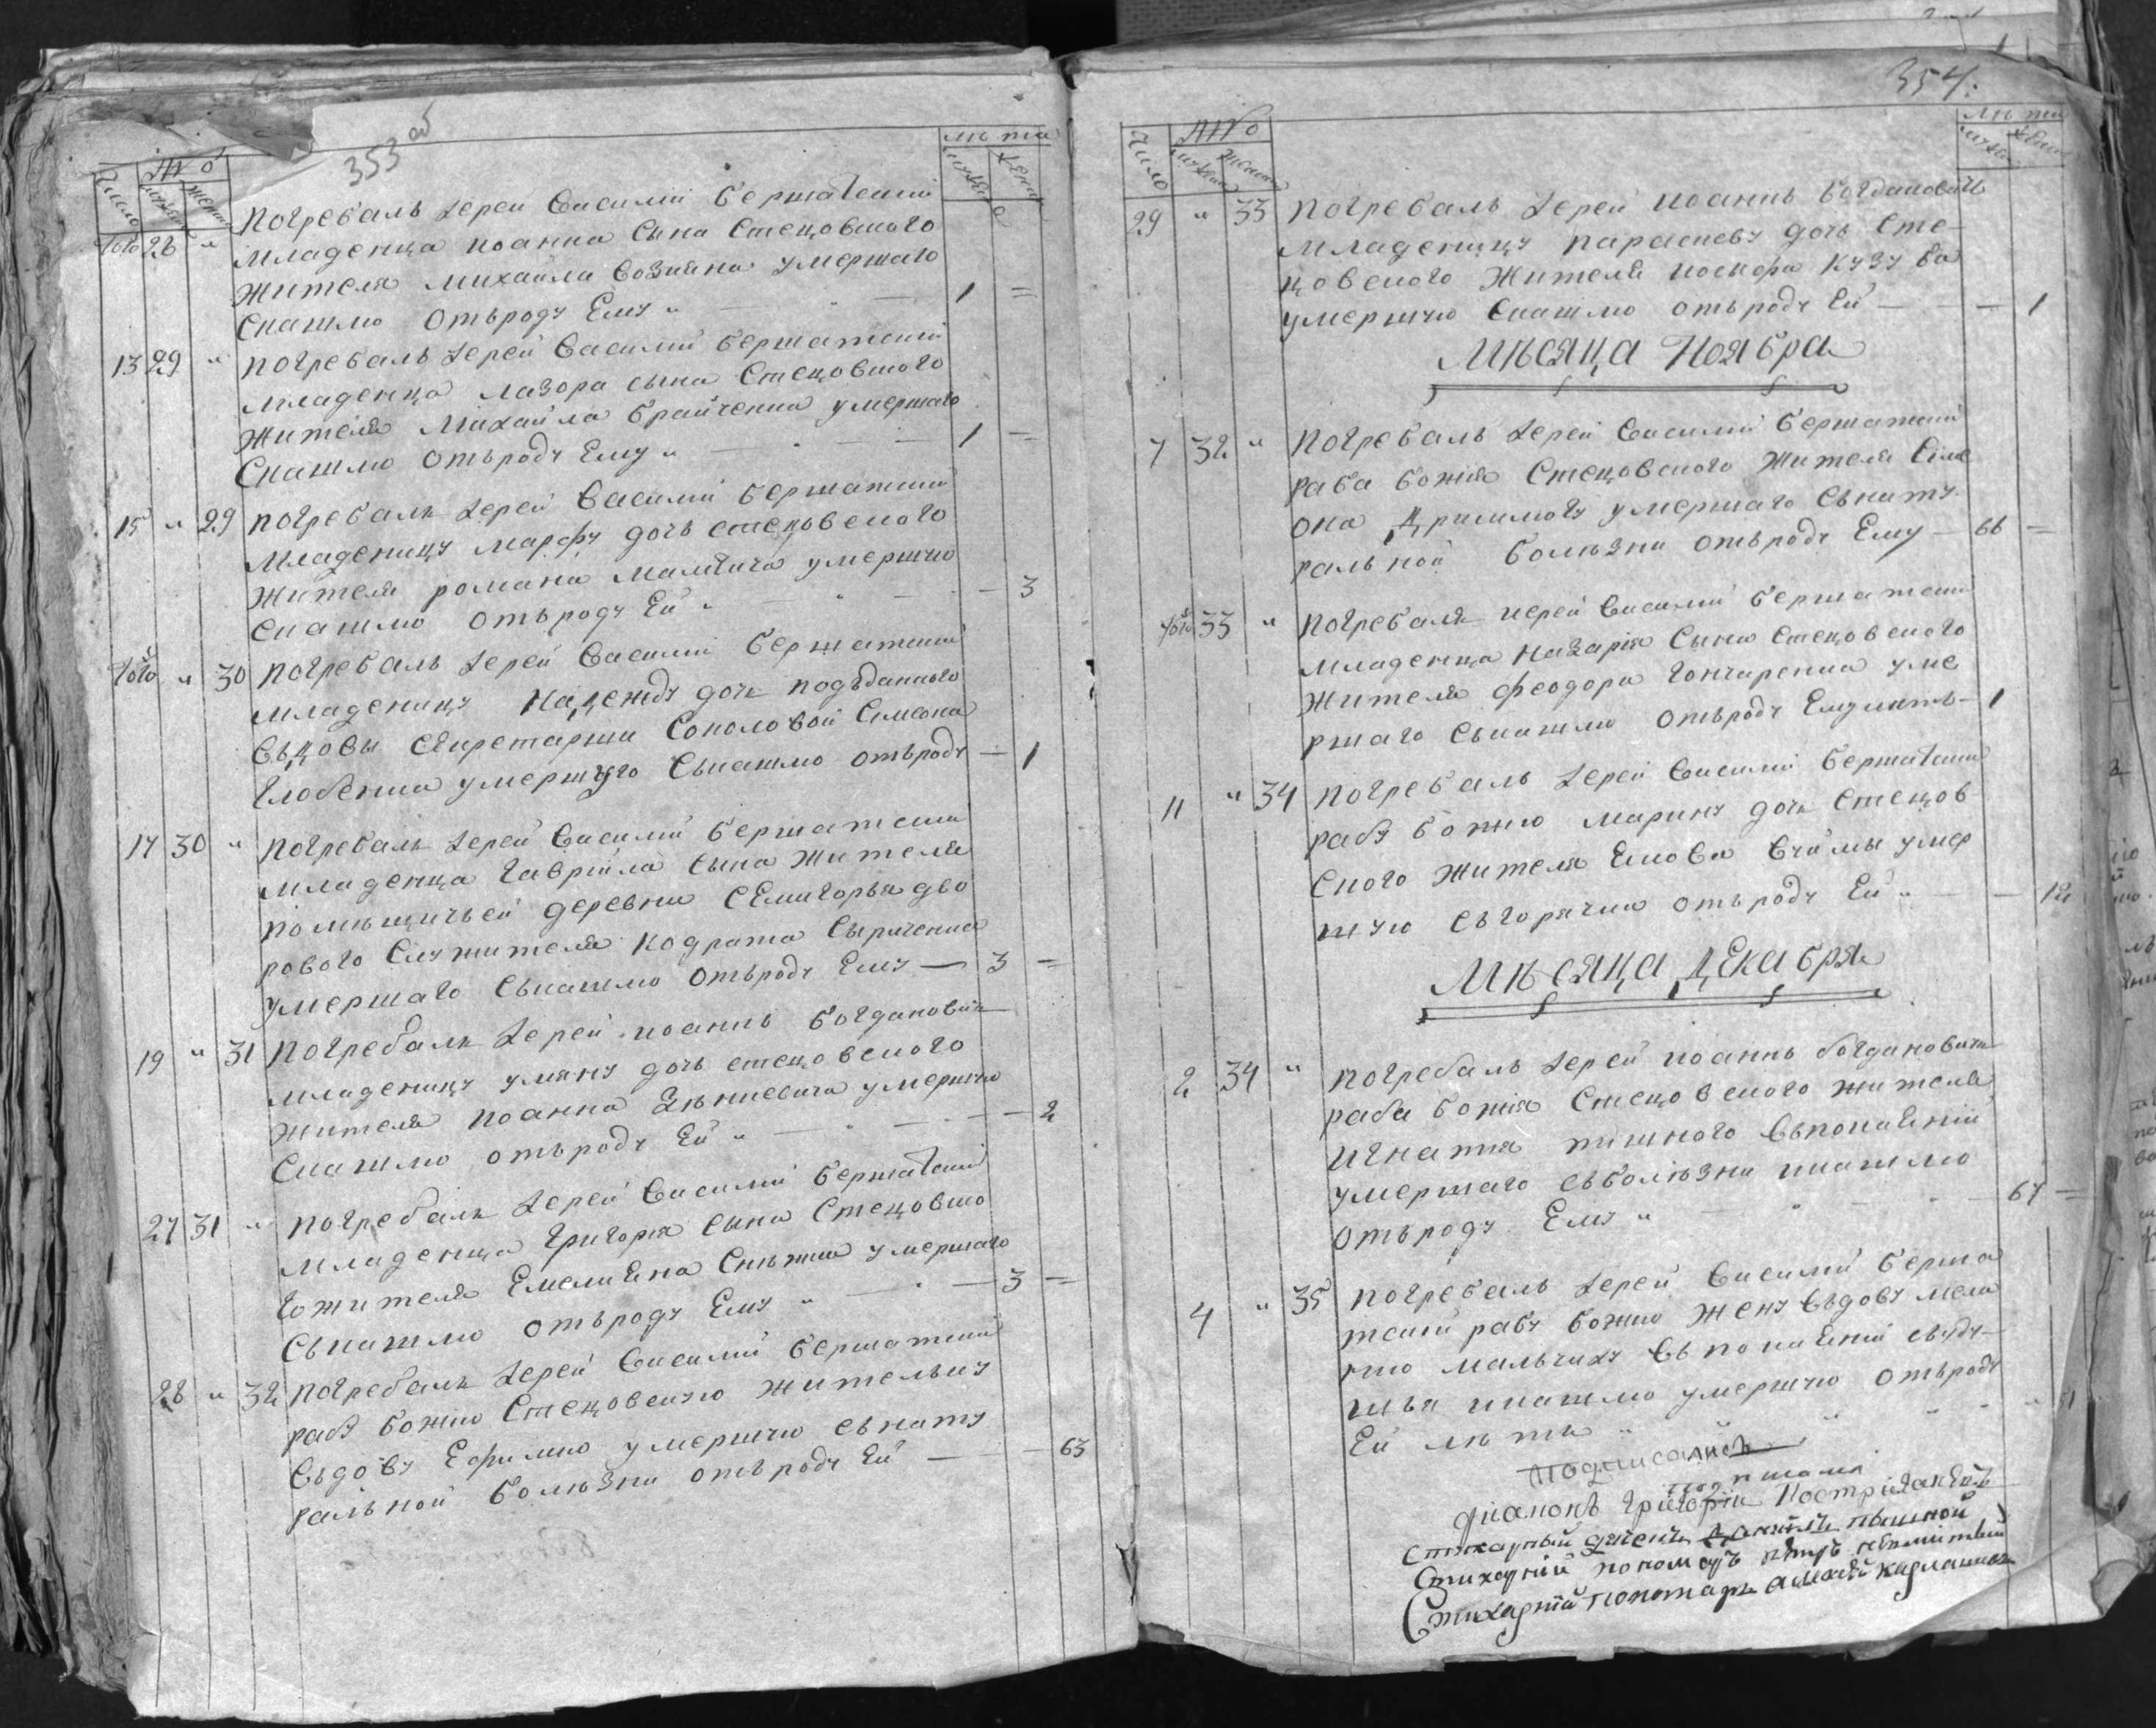 353 об
Число № лета
мужеск женск
мужеск женск
того 28 " погребалъ Іерей Василій Бершатский
младенца иоанна сына Стецовского
жителя михайла умершаго
Скашлю отъроду Ему " — 1 =
13 29 " погребалъ Іерей Василий Бершатский
младенца лазора сына Стецовского
жителя Михайла Брайченка умершаго
Скашлю отъроду Ему " — 1 =
15 " 29 погребалъ Іерей Василий Бершатский
младеницу марфу дочь стецовского
жителя романа умершую
скашлю отъроду Ей " — 3
того " 30 погребалъ Іерей Василий Бершатский
младеницу Надежду дочь подъданного
въдовы секретарши Соколовой Симеона
умершуго Скашлю отъроду — 1
17 30 " погребалъ Іерей Василий Бершатский
младенца Гавріила сына жителя
помещичьей деревни Семигорья дво
рового служителя Кодрата Сыриченка
умершаго Съкашлю отъроду Ему — 3 =
19 " 31 погребалъ Іерей иоаннъ Богдановичъ
младеницу умяну дочь стецовского
жителя иоанна Зѣнкевича умершую
Скашлю отъроду Ей " — 2
27 31 " погребалъ Іерей Василий Бершатский
младенца Григорія сына Стецовско
го жителя Емельяна Снѣжка умершаго
Съкашлю отъроду Ему " — 3 =
28 " 32 погребалъ Іерей Василий Бершатский
рабу божию Стецовскую жительку
въдову Ефимию умершую съ нату
ральной болюзни отъроду Ей — 63
354.
Число № лета
мужеск женск
мужеск женск
29 " 33 погребалъ Іерей иоаннъ Богдановичъ
младеницу параскеву дочь Сте-
цовского жителя иосифа
умершую Скашлю отъроду Ей — 1
Мѣсяца Ноября
7 32 " погребалъ Іерей Василий Бершатский
раба божія Стецовского жителя Сѵме
она умершаго съ нату
ральной болюзни отъроду Ему — 66 =
того 33 " погребалъ иерей Василий Бершатский
младенца назарія сына Стецовского
жителя феодора Гончаренка уме
ршаго Съкашлю отъроду Ему лѣтъ — 1
11 " 34 погребалъ Іерей Василий Бершатский
рабу божию марину дочь Стецов-
ского жителя Якова умер
шую съ горячки отъроду Ей " — 12
Мѣсяца Декабря
2 34 " погребалъ Іерей иоаннъ богдановичъ
раба божія Стецовского жителя
игнатія пишного въпокаяній
умершаго съболюзни кашлю
отъроду Ему " — 67 =
4 " 35 погребалъ Іерей Василий Берша
тский рабу божию жену въдову мела
нию въ покаяній съуду-
шья кашлю умершую отъроду
Ей лѣтъ " — 51
подписались
дияконъ Григорій
Стихарный дячокъ пышной
Стихарній пономаръ
Стихарній пономарь алексій